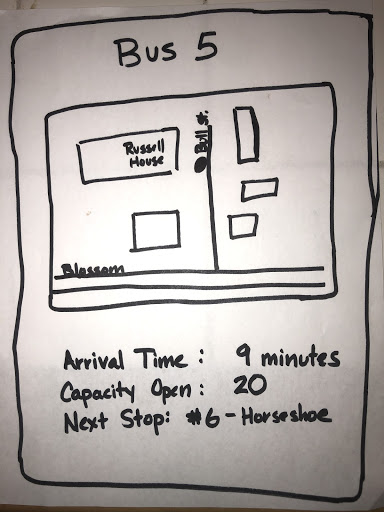 Bus 5
Russell
House
Bull St.
Blossom
Arrival Time: 9 minutes
Capacity Open: 20
Next Stop: #6 - Horseshoe